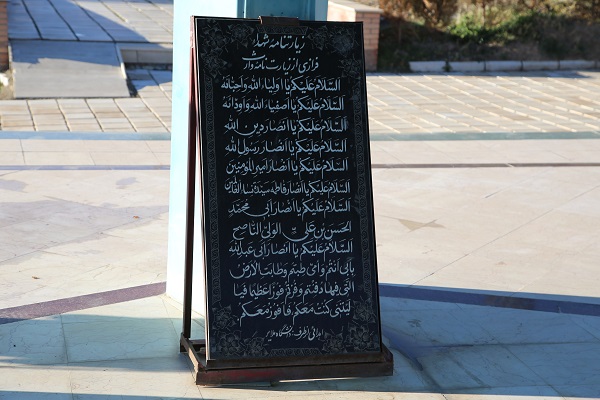 زیارتنامه شهدا
فرازی از زیارت نامه وارث
اَلسَّلامُ عَلَیکُم یا اَولِیاءَ اللهِ وَاَحِبّائَهُ
اَلسَّلامُ عَلَیکُم یا اَصفِیاءَ اللهِ وَاَوِدّائَهُ
اَلسَّلامُ عَلَیکُم یا اَنصارَ دینِ اللهِ
اَلسَّلامُ عَلَیکُم یا اَنصارَ رَسُولِ اللهِ
اَلسَّلامُ عَلَیکُم یا اَنصارَ اَمیرِ المُؤمِنینَ
اَلسَّلامُ عَلَیکُم یا اَنصارَ فاطِمَه سَیِّدَةِ نِساءِ العالَمینَ
اَلسَّلامُ عَلَیکُم یا اَنصارَ اَبی مُحَمَّدٍ
الحَسَنِ بنِ عَلِیٍّ الوَلِیِّ النّاصِحِ
اَلسَّلامُ عَلَیکُم یا اَنصارَ اَبی عَبدِاللهِ
بِاَبی اَنتُم وَ اُمّی طِبتُم وَ طابَتِ الاَرضُ
الَّتی فیها دُفِنتُم وَ فُزتُم فَوزًا عَظیمًا فَیا
لَیتَنی کُنتُ مَعَکُم فَاَفُوزَ مَعَکُم
اهدائی از طرف: دانشگاه ملایر